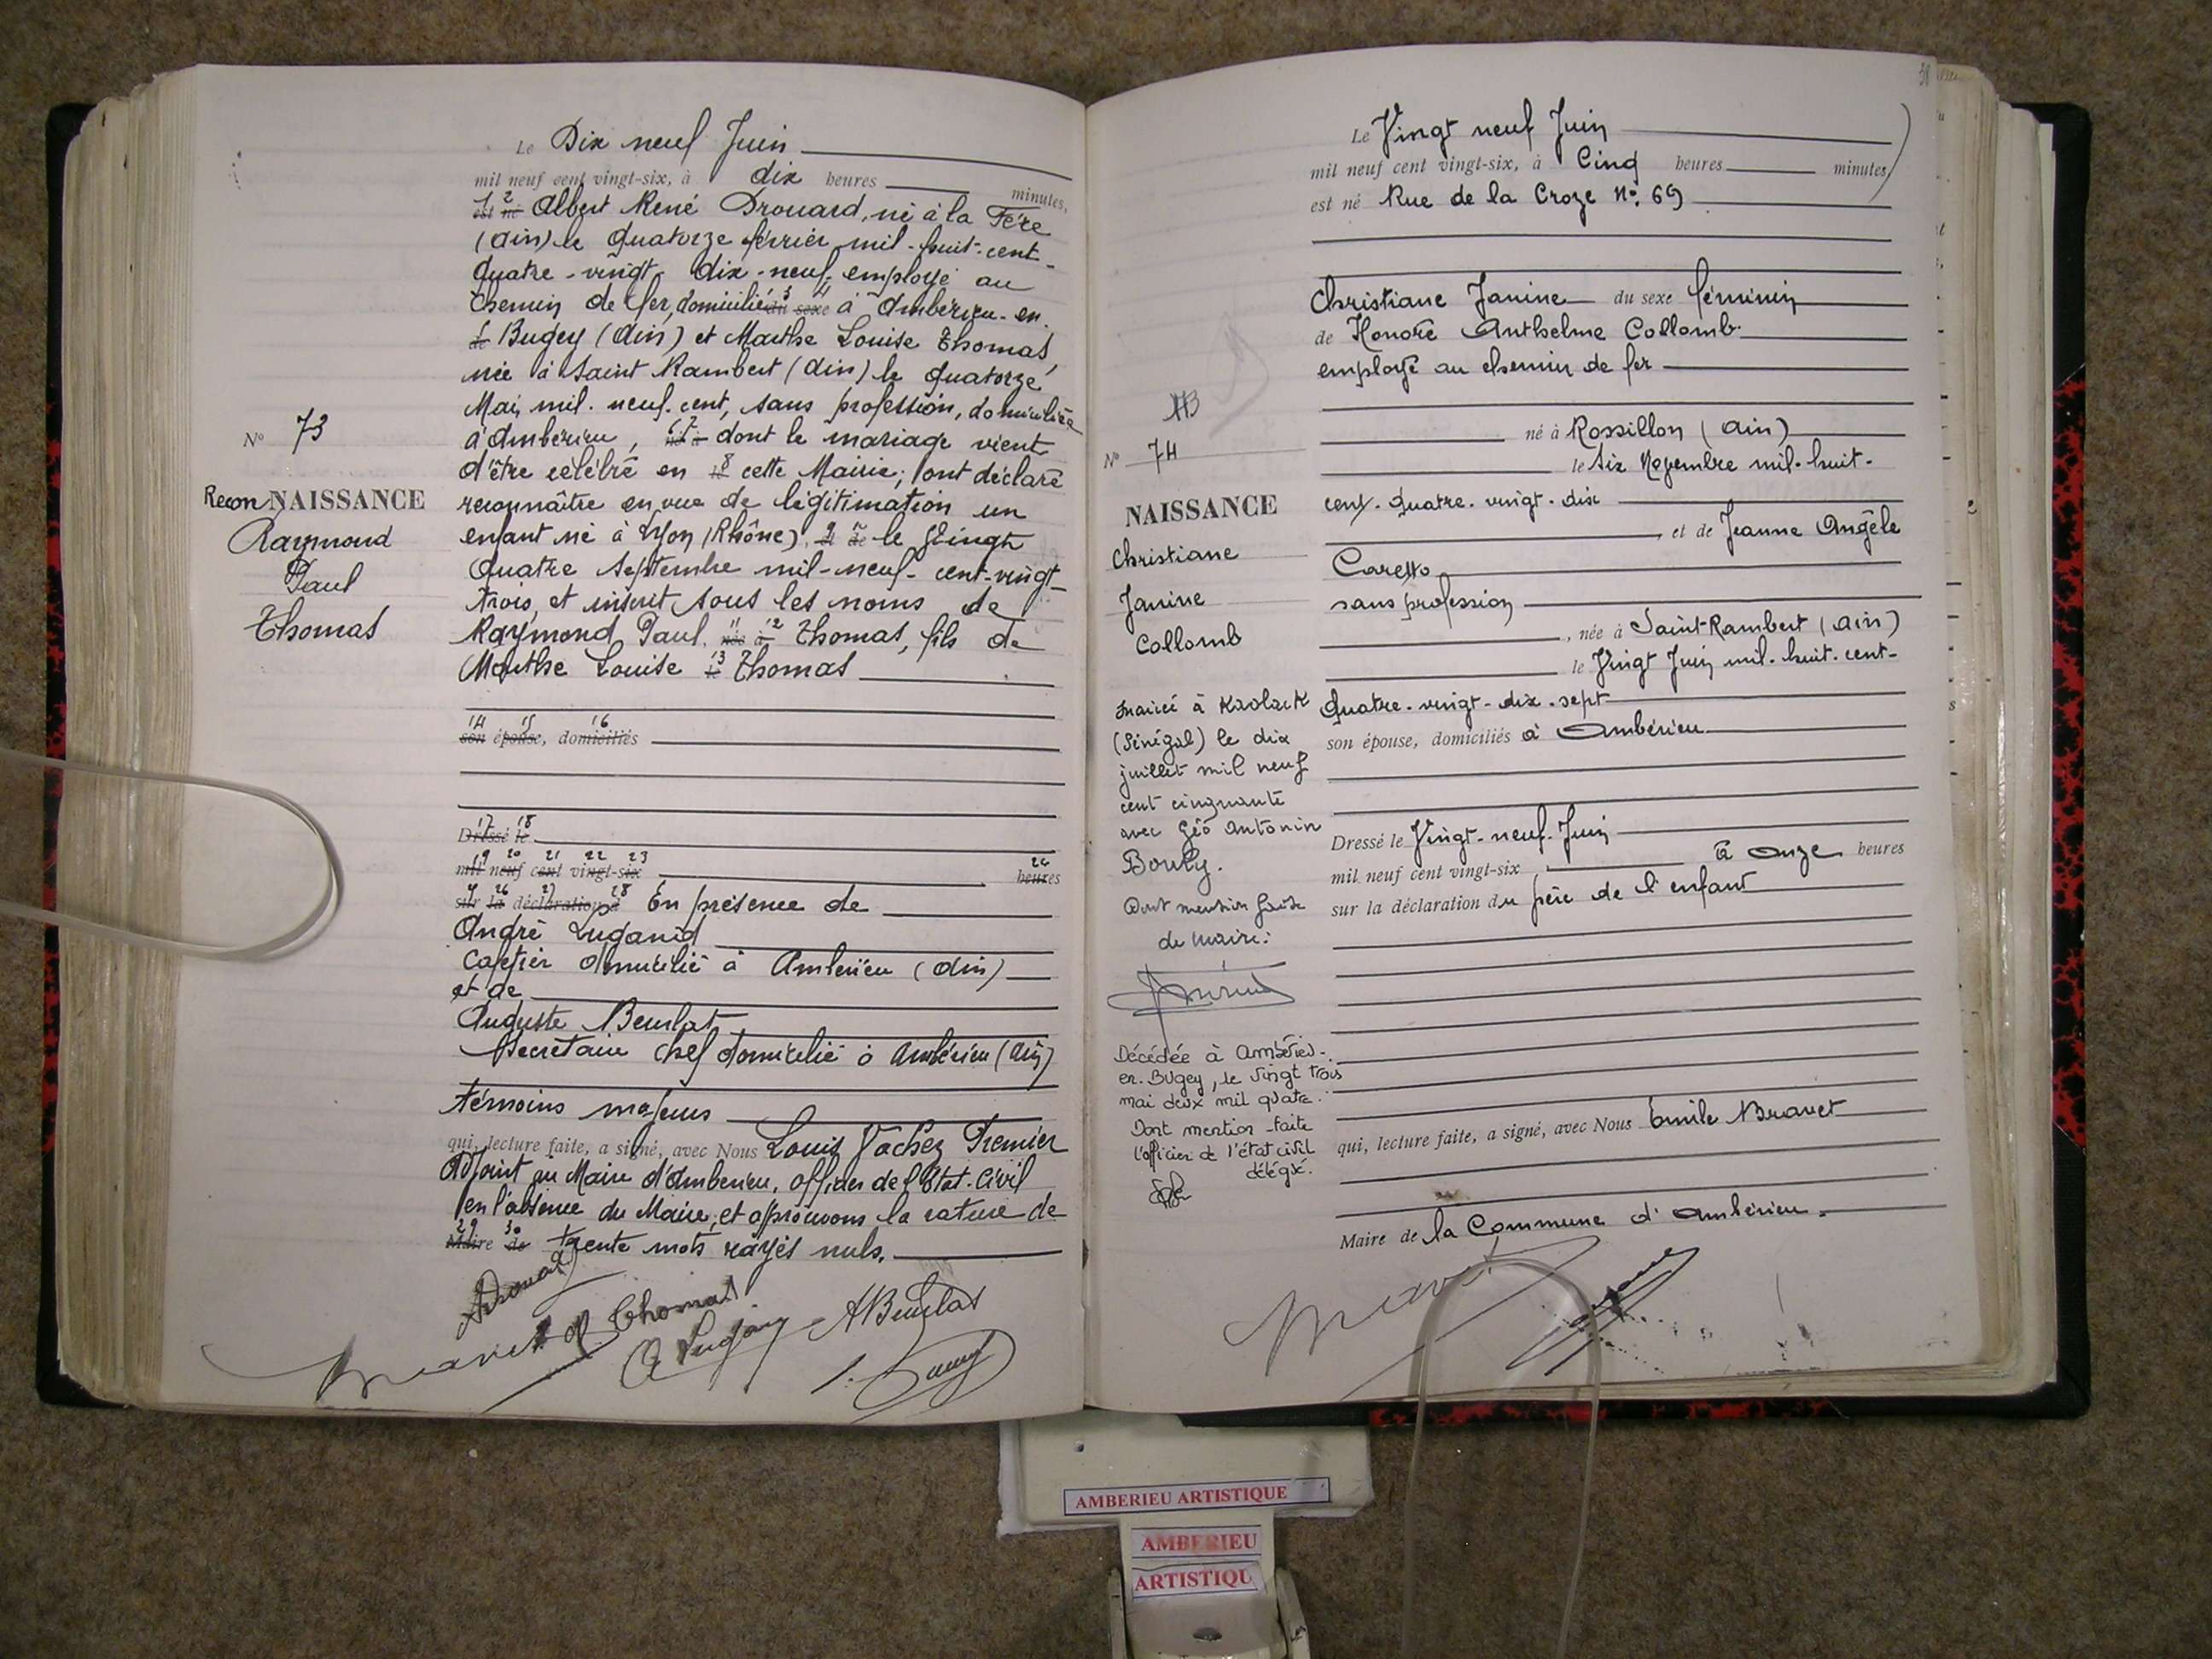 Le Dix neuf Juin
mil neuf cent vingt-six, à dix heures minutes,
1 2
est né Albert René Drouard, né à la Fère
(Ain) le quatorze février mil-huit-cent-
quatre-vingt-dix-neuf, employé au
chemin de fer, domicilié du sexe à Ambérieu-en-
3 4
de Bugey (Ain) et Marthe Louise Thomas,
née à Saint Rambert (Ain) le quatorze
Mai mil-neuf-cent, sans profession, domiciliée
à Ambérieu, né à dont le mariage vient
6 7
d'être célébré en le cette Mairie; ont déclaré
8
reconnaître en vue de légitimation un
enfant né à Lyon (Rhône), et de le Vingt
quatre Septembre mil-neuf-cent-vingt-
trois, et inscrit sous les noms de
Raymond Paul née à Thomas, fils de
11 12
Marthe Louise le Thomas
13
14 15 16
son épouse, domiciliés
17 18
Dressé le
19 20 21 22 23 24
mil neuf cent vingt-six heures
26 27 28
sur la déclaration d En présence de
André Lugand
cafetier domicilié à Ambérieu (Ain)
et de
Auguste Beurlat
Secrétaire chef domicilié à Ambérieu (Ain)
témoins majeurs
qui, lecture faite, a signé, avec Nous Louis Vachez Premier
Adjoint au Maire d'Ambérieu, officier de l'Etat-Civil
en l'absence du Maire, et approuvons la rature de
29 30
Maire de trente mots rayés nuls.
Drouard
Thomas
A Beurlat
N° 73
Recon NAISSANCE
Raymond
Paul
Thomas
38
Le Vingt neuf Juin
mil neuf cent vingt-six, à Cinq heures minutes
est né Rue de la Croze n° 69
Christiane Janine du sexe féminin
de Honoré Anthelme Collomb
employé au chemin de fer
né à Rossillon (Ain)
le Six Novembre mil-huit-
cent-quatre-vingt-dix
, et de Jeanne Angèle
Caretto
sans profession
, née à Saint-Rambert (Ain)
le Vingt Juin mil-huit-cent-
Quatre-vingt-dix-sept
son épouse, domiciliés à Ambérieu
Dressé le Vingt-neuf-Juin
mil neuf cent vingt-six, à Onze heures
sur la déclaration du père de l'enfant
qui, lecture faite, a signé, avec Nous Emile Bravet
Maire de la Commune d'Ambérieu.
N° 74
NAISSANCE
Christiane
Janine
Collomb
Mariée à Kaolack
(Sénégal) le dix
juillet mil neuf
cent cinquante
avec Géo Antonin
Bouly.
Dont mention faite
Décédée à Ambérieu-
en-Bugey, le vingt trois
mai deux mil quatre.
Dont mention faite
l'officier de l'état civil
délégué.
AMBERIEU ARTISTIQUE
AMBERIEU
ARTISTIQU